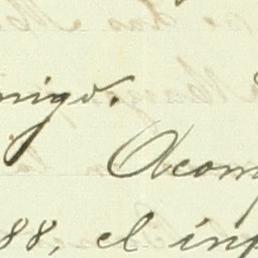 migo.
Acom
88, el inf